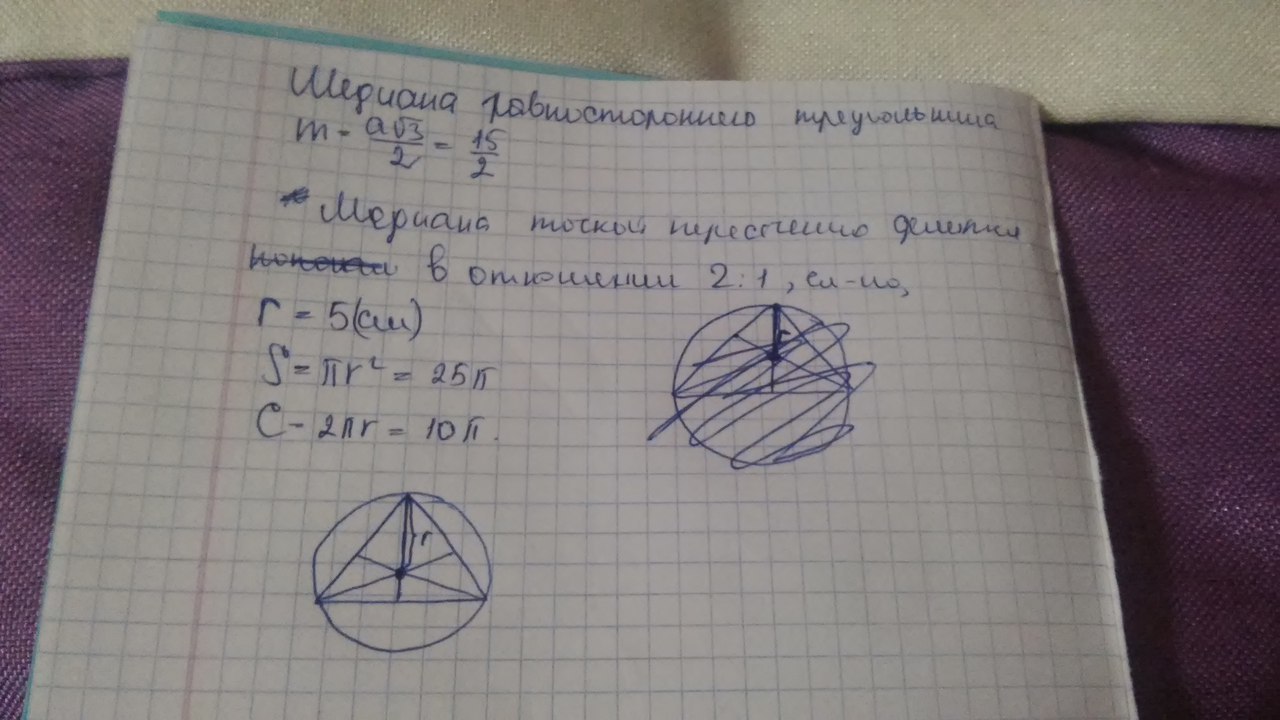 Медиана равностороннего треугольника
m - a√3/2 = 15/2
Медиана точкой пересечению делится
в отношении 2:1, сл-но,
r = 5(см)
S = πr² = 25π
C - 2πr = 10π.
r
r